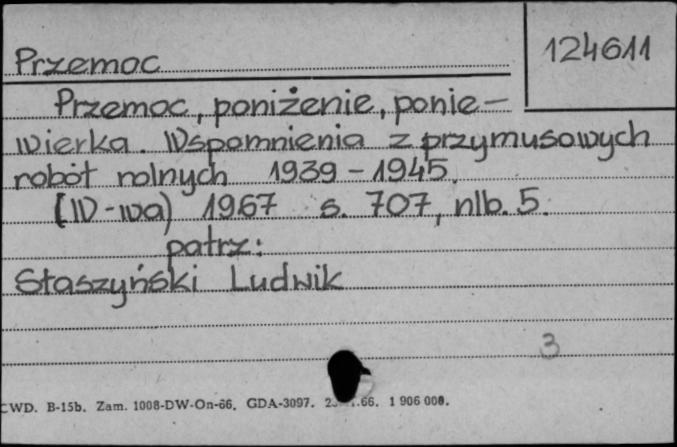 Przemoc
124611
Przemoc, poniżenie, ponie-
wierka. Wspomnienia z przymusowych
robót rolnych 1939-1945.
[W-wa] 1967 s. 707, nlb. 5.
patrz:
Staszyński Ludwik
3
CWD. B-15b. Zam. 1008-DW-On-66. GDA-3097. .66. 1 906 000.